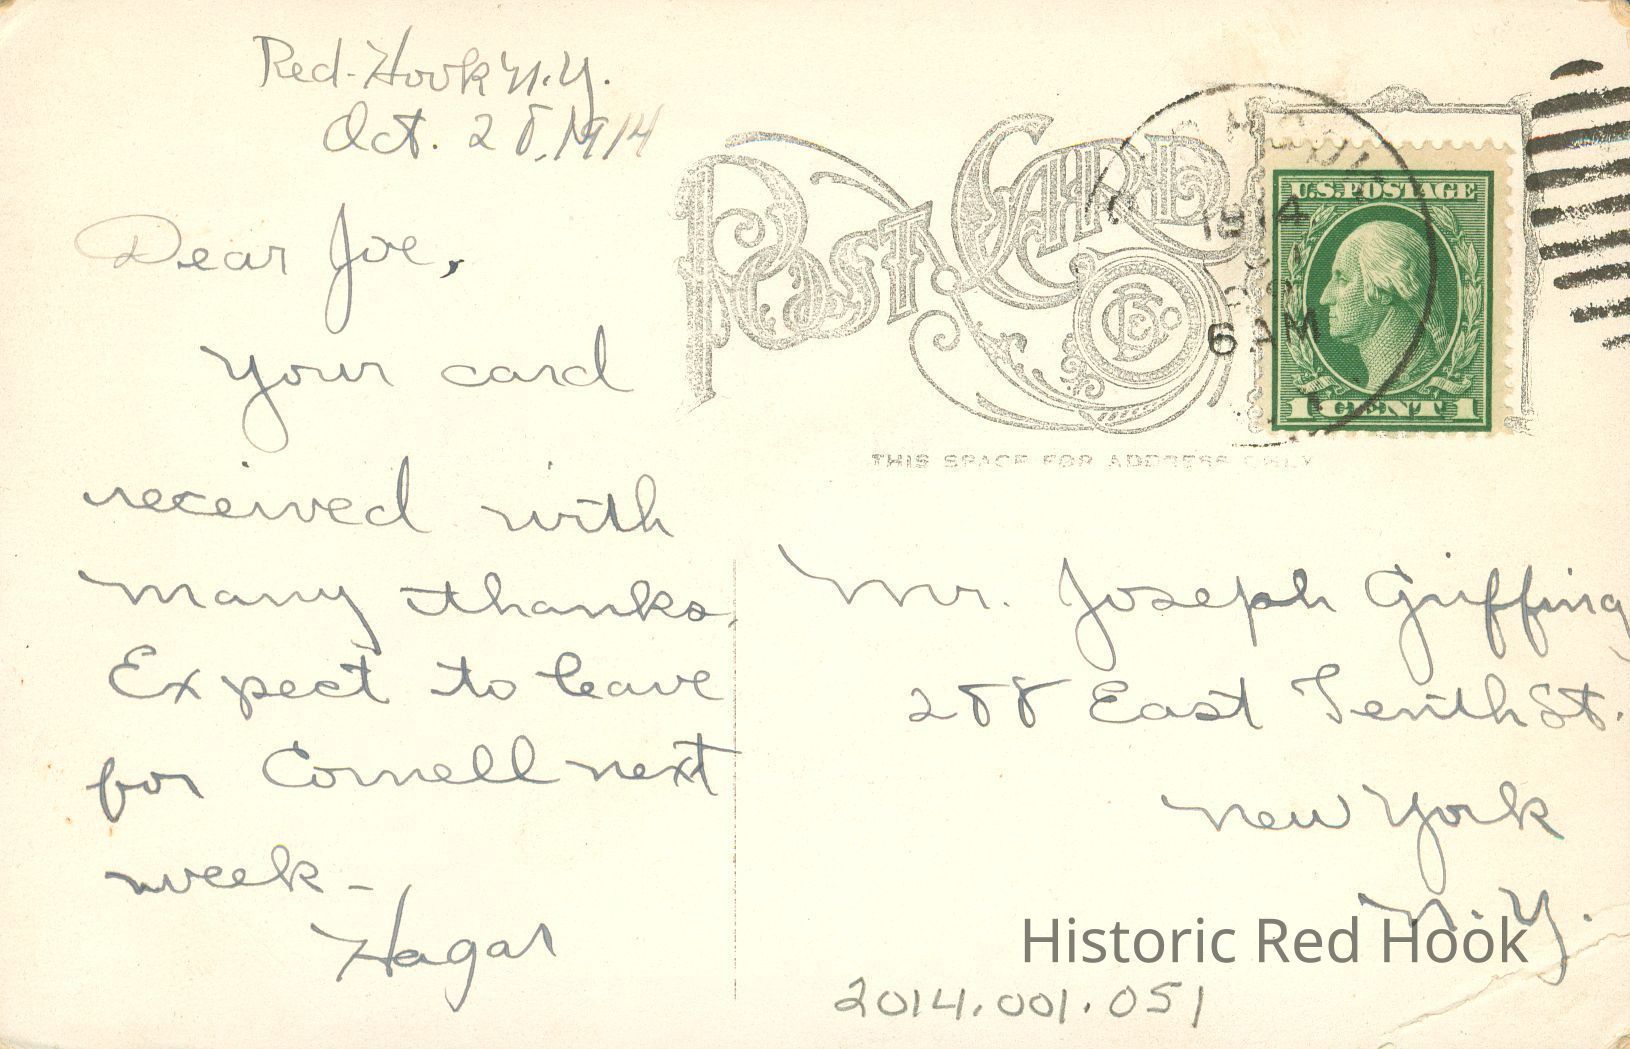 Red-Hook N.Y.
Oct. 28, 1914
Dear Joe,
Your card
received with
many thanks.
Expect to leave
for Cornell next
week-
Hagar
POST CARD
1914
6 AM
U.S. POSTAGE
1 CENT 1
THIS SPACE FOR ADDRESS ONLY
Mr. Joseph Griffing
288 East Tenth St.
New York
N.Y.
Historic Red Hook
2014.001.051